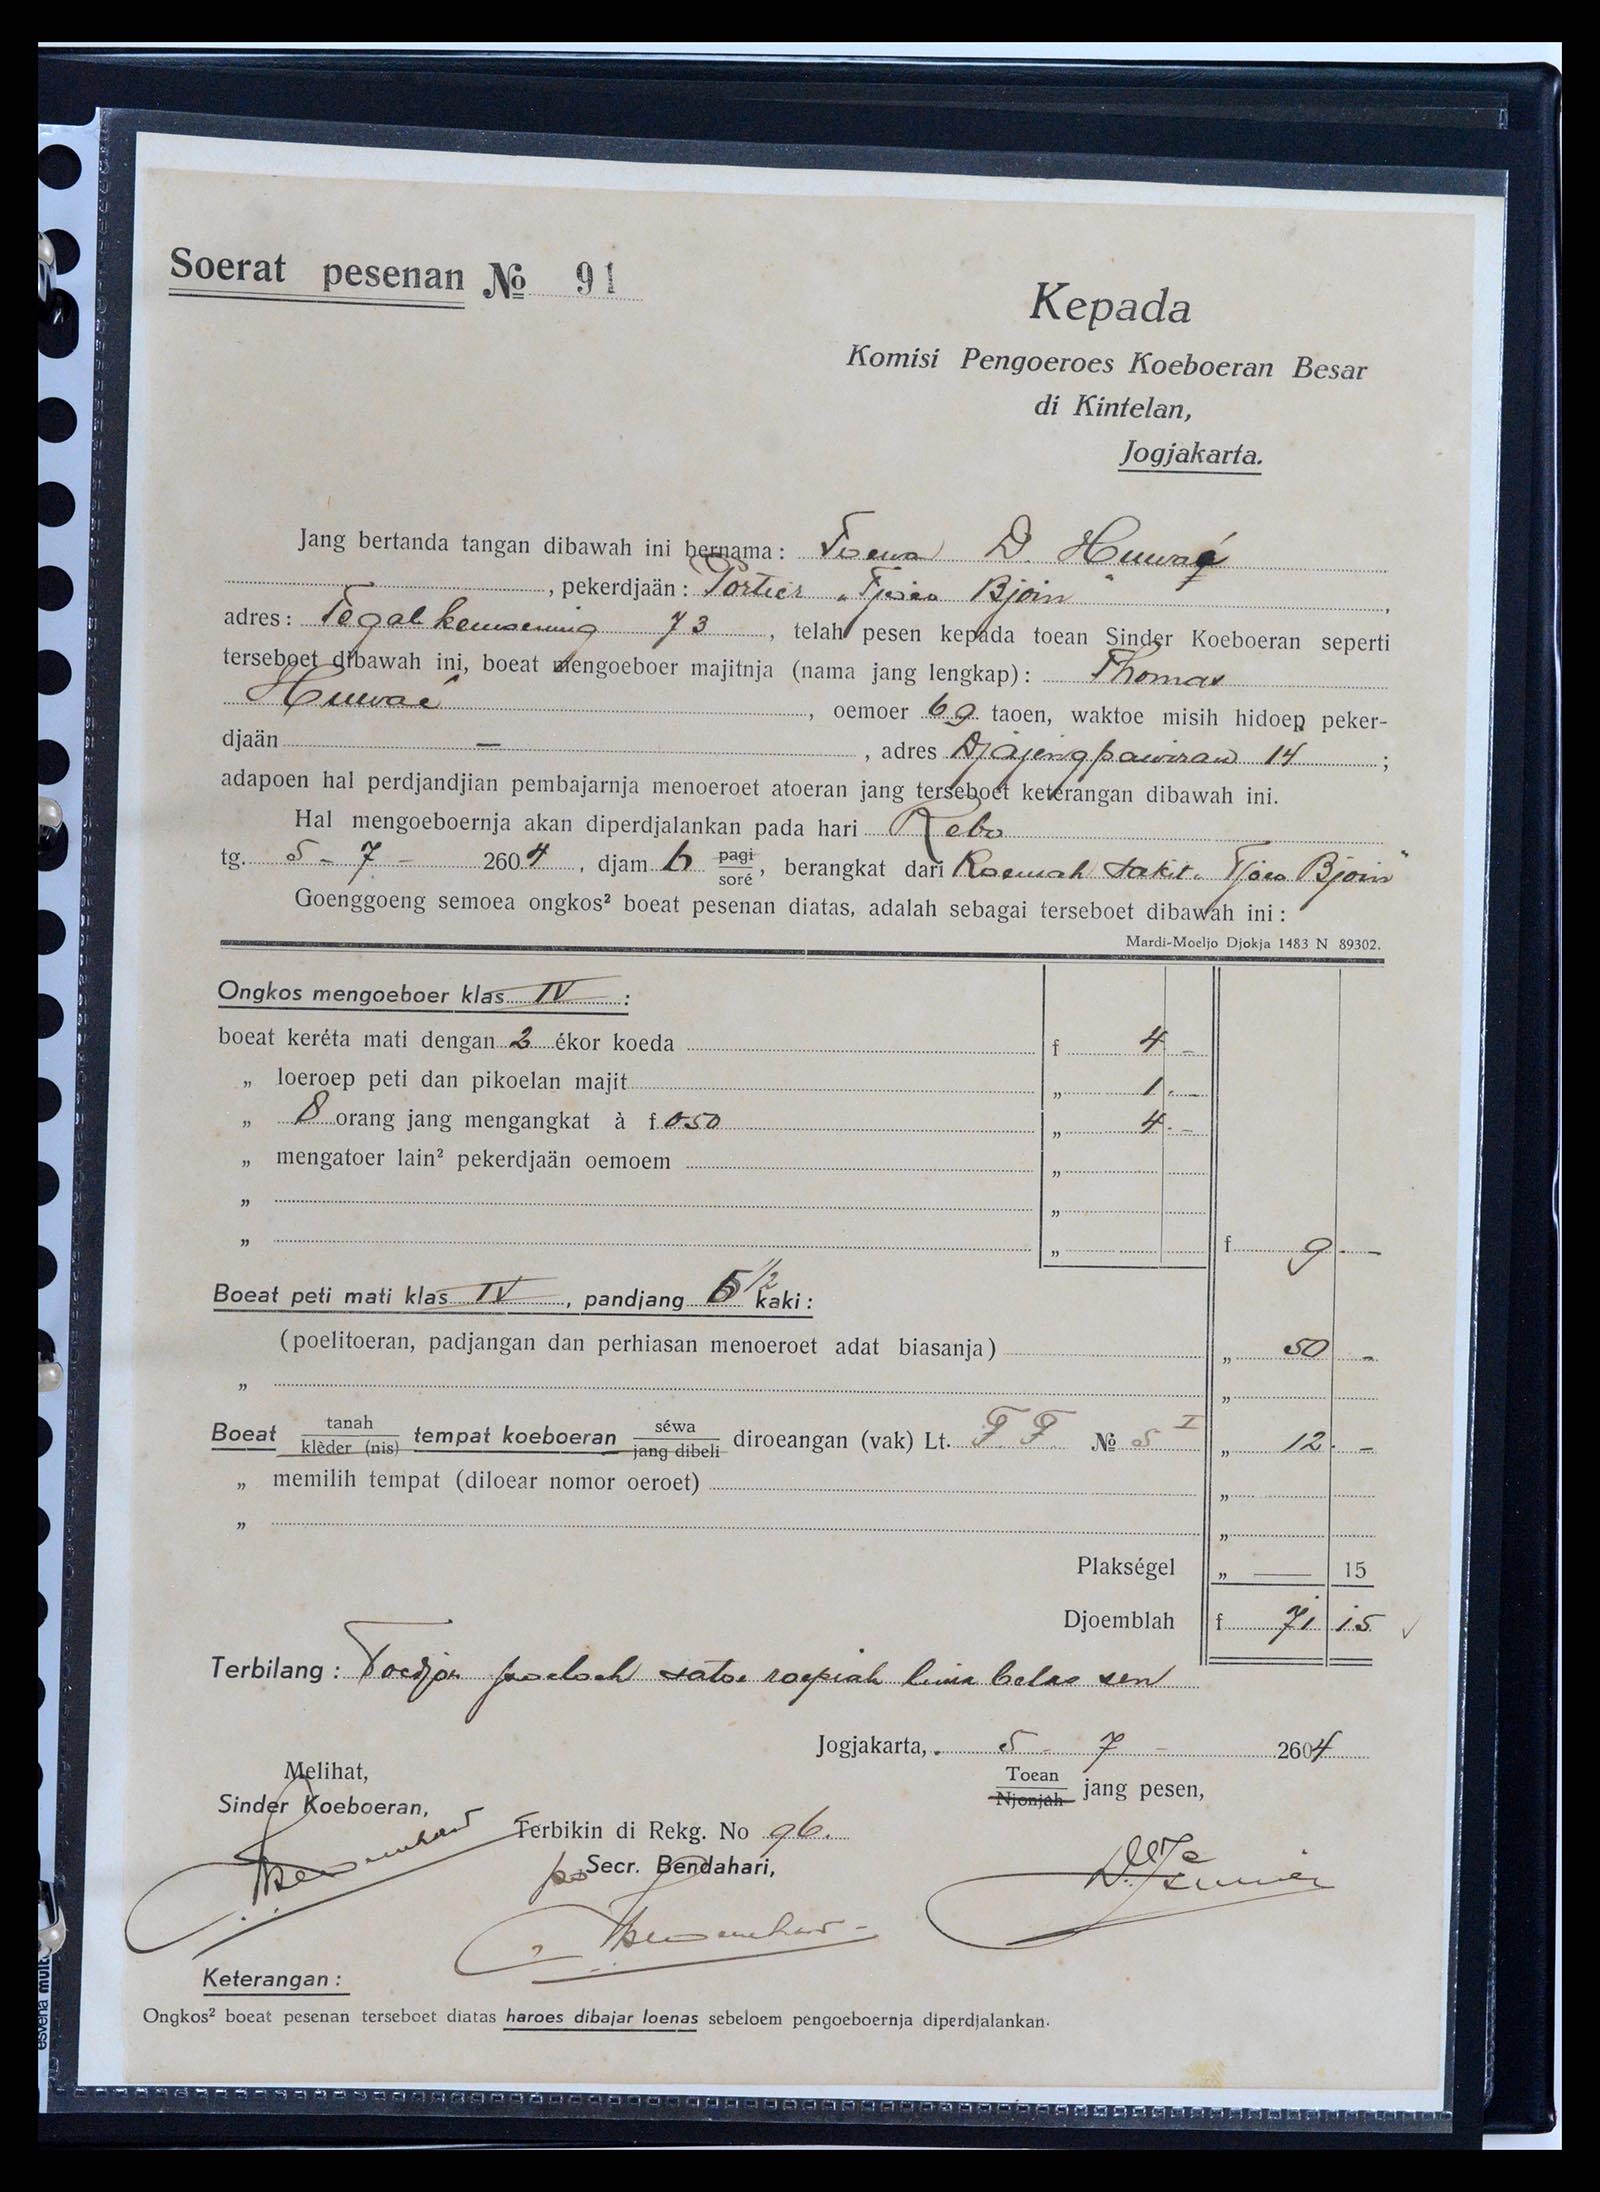 Soerat pesenan No 91
Kepada
Komisi Pengoeroes Koeboeran Besar
di Kintelan,
Jogjakarta.
Jang bertanda tangan dibawah ini bernama: Toewan D. Huwaé
, pekerdjaän: Portier „Tjoico Bjoin"
adres: Tegal kemoening 73, telah pesen kepada toean Sinder Koeboeran seperti
terseboet dibawah ini, boeat mengoeboer majitnja (nama jang lengkap): Thomas
Huwaé, oemoer 69 taoen, waktoe misih hidoep peker-
djaän —, adres Djajengpawiran 14;
adapoen hal perdjandjian pembajarnja menoeroet atoeran jang terseboet keterangan dibawah ini.
Hal mengoeboernja akan diperdjalankan pada hari Rebo
tg. 5 - 7 - 2604, djam 6 pagi/soré, berangkat dari Roemah sakit „Tjoico Bjoin"
Goenggoeng semoea ongkos² boeat pesenan diatas, adalah sebagai terseboet dibawah ini:
Mardi-Moeljo Djokja 1483 N 89302.
Ongkos mengoeboer klas IV:
boeat keréta mati dengan 2 ékor koeda f 4 -
„ loeroep peti dan pikoelan majit „ 1 . -
„ 8 orang jang mengangkat à f 0.50 „ 4 . -
„ mengatoer lain² pekerdjaän oemoem „
„ „
„ „ f 9 . -
Boeat peti mati klas IV, pandjang 5 1/2 kaki:
(poelitoeran, padjangan dan perhiasan menoeroet adat biasanja) „ 50 -
„ „
Boeat tanah/klèder (nis) tempat koeboeran séwa/jang dibeli diroeangan (vak) Lt. F F. No 5 I „ 12 . -
„ memilih tempat (diloear nomor oeroet) „
„ „
Plakségel „ — 15
Djoemblah f 71 15
Terbilang: Toedjoe poeloeh satoe roepiah lima belas sen
Jogjakarta, 5 - 7 - 2604
Melihat,
Toean/Njonjah jang pesen,
Sinder Koeboeran,
Terbikin di Rekg. No 96.
Secr. Bendahari,
Keterangan:
Ongkos² boeat pesenan terseboet diatas haroes dibajar loenas sebeloem pengoeboernja diperdjalankan.